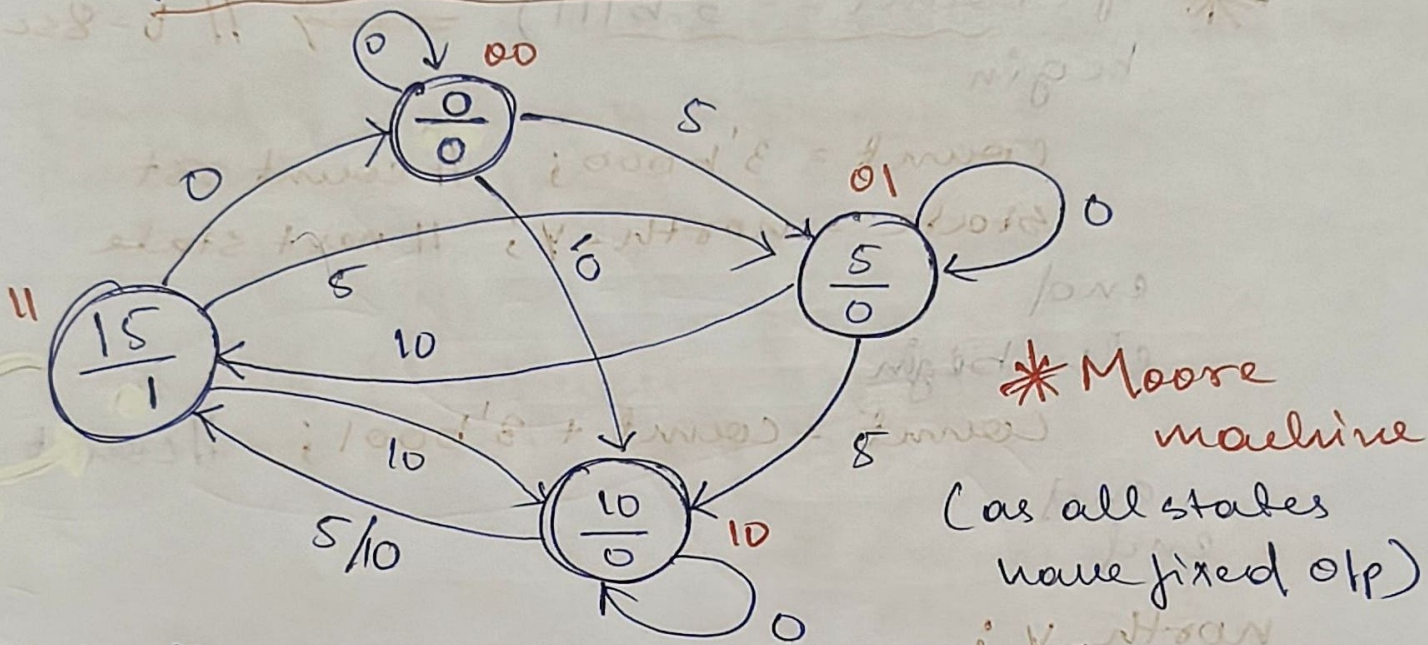 0
00
0
0
5
01
0
0
5
5
0
11
15
1
10
10
5
5/10
10
0
10
0
* Moore
machine
(as all states
have fixed o/p)